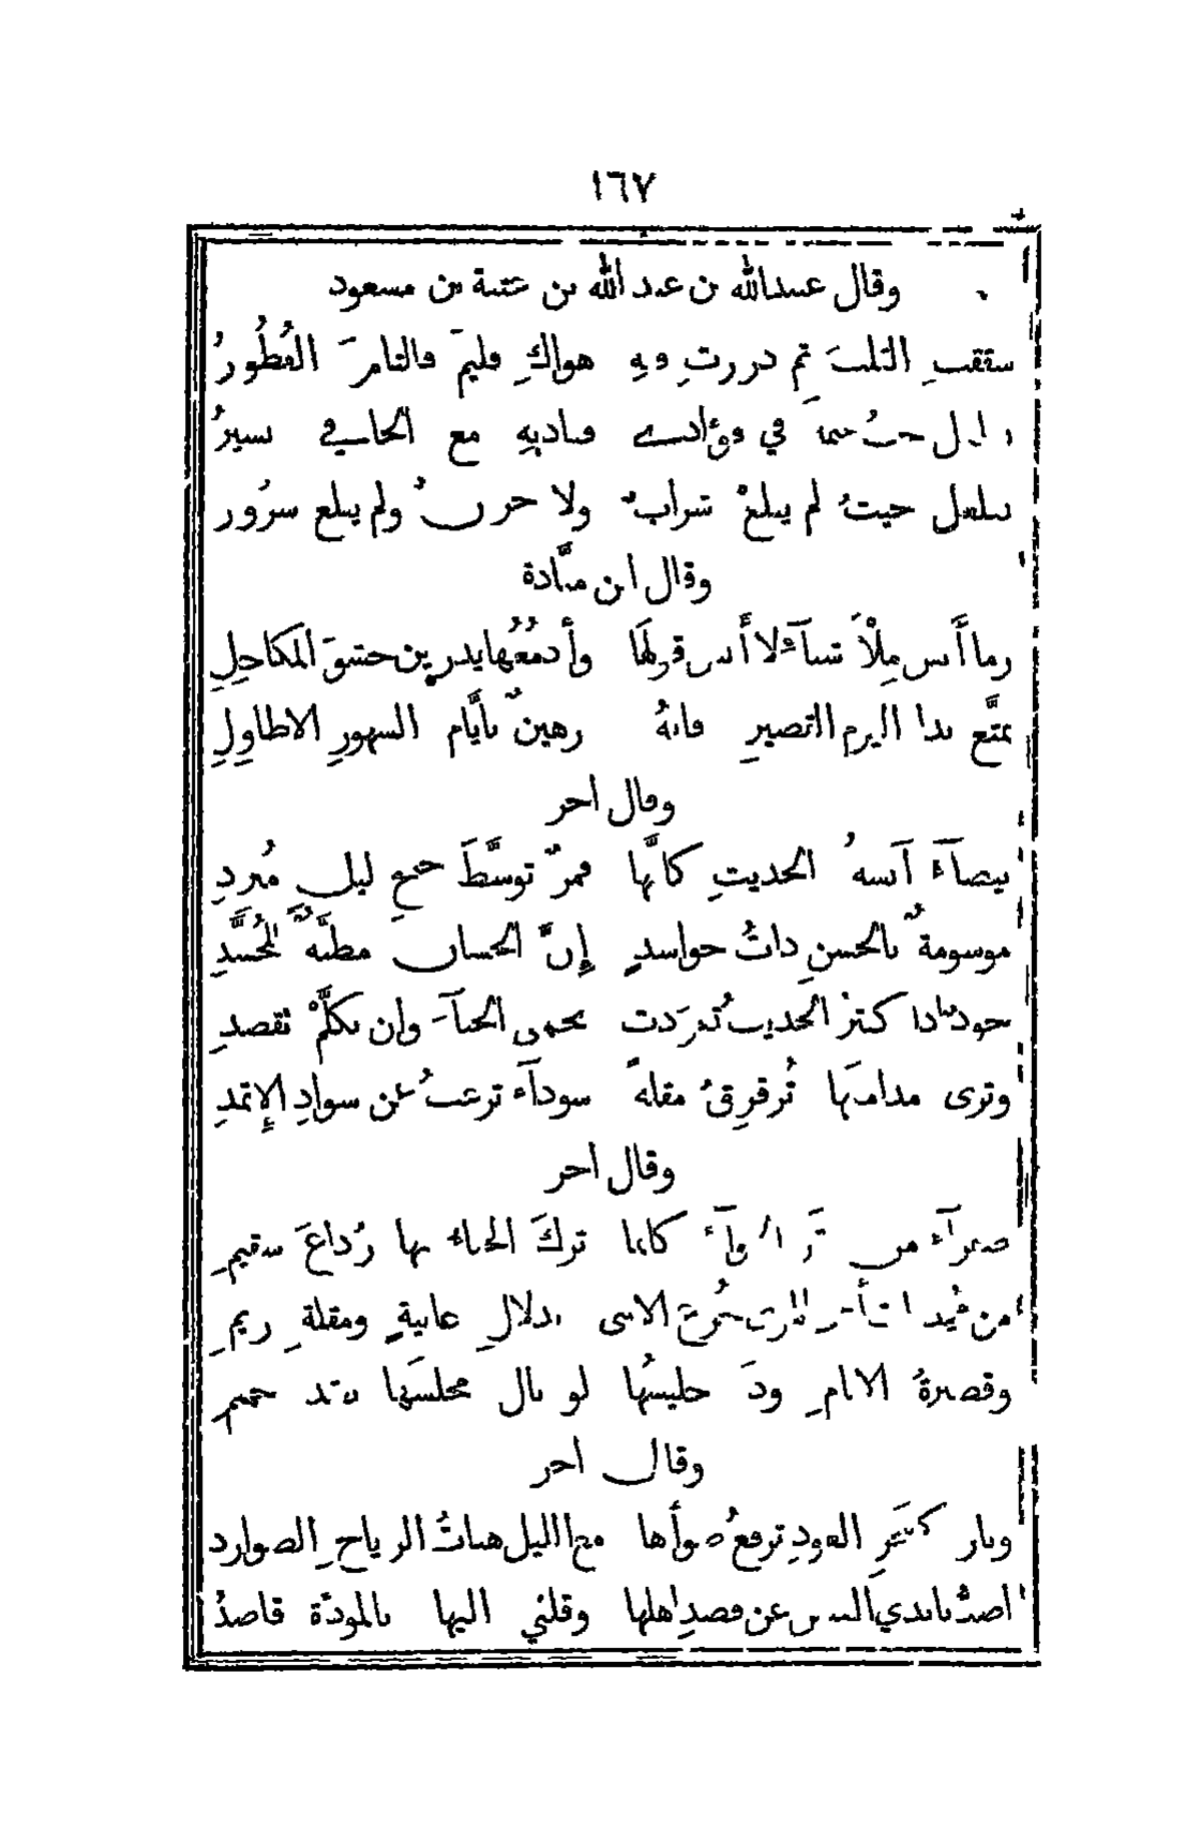 ١٦٧
وقال عبيدالله بن عبد الله بن عتبة بن مسعود
شققتِ القلبَ ثم ذررتِ فيهِ هواكِ فليمَ فالتامَ الفُطُورُ
تغلغل حبُّ عثمةَ في فؤادي فباديهِ مع الخافي يسيرُ
تغلغل حيثُ لم يبلغْ شرابٌ ولا حزنٌ ولم يبلغ سرُور
وقال ابن ميَّادة
وما أَنس مِلْأَشيآءِ لا أَنس قولهَا وأدمُعُها يذرين حشوَ المكاحلِ
تمتَّع بذا اليوم القصيرِ فانهُ رهينٌ بأيَّام الشهورِ الاطاولِ
وقال اخر
بيضآءُ آنسةُ الحديثِ كانَّها قمرٌ توسَّطَ جنحِ ليلٍ مُبردِ
موسومةٌ بالحسنِ ذاتُ حواسدٍ إِنَّ الحسان مظنَّةٌ للحُسَّدِ
خودٌ اذا كثر الحديثُ تعوَّذت بحمى الحيآءِ وإن تكلَّمْ تقصدِ
وترى مدامعَها تُرقرقُ مقلةً سودآءَ ترغبُ عن سوادِ الإِثمدِ
وقال اخر
صفرآءُ من بقرِ الجوآءِ كانما تركَ الحياءُ بها رُداعَ سقيمِ
من الاسى بدلالِ غانيةٍ ومقلةِ ريمِ
وقصيرةُ الايامِ ودَّ جليسُها لو نال مجلسَها بفقد حميمِ
وقال اخر
ونار كسَحرِ العودِ ترفعُ ضوأَها مع الليل هباتُ الرياحِ الصوارد
اصدُّ بايدي العيس عن قصدِ اهلها وقلبي اليها بالمودَّة قاصدُ